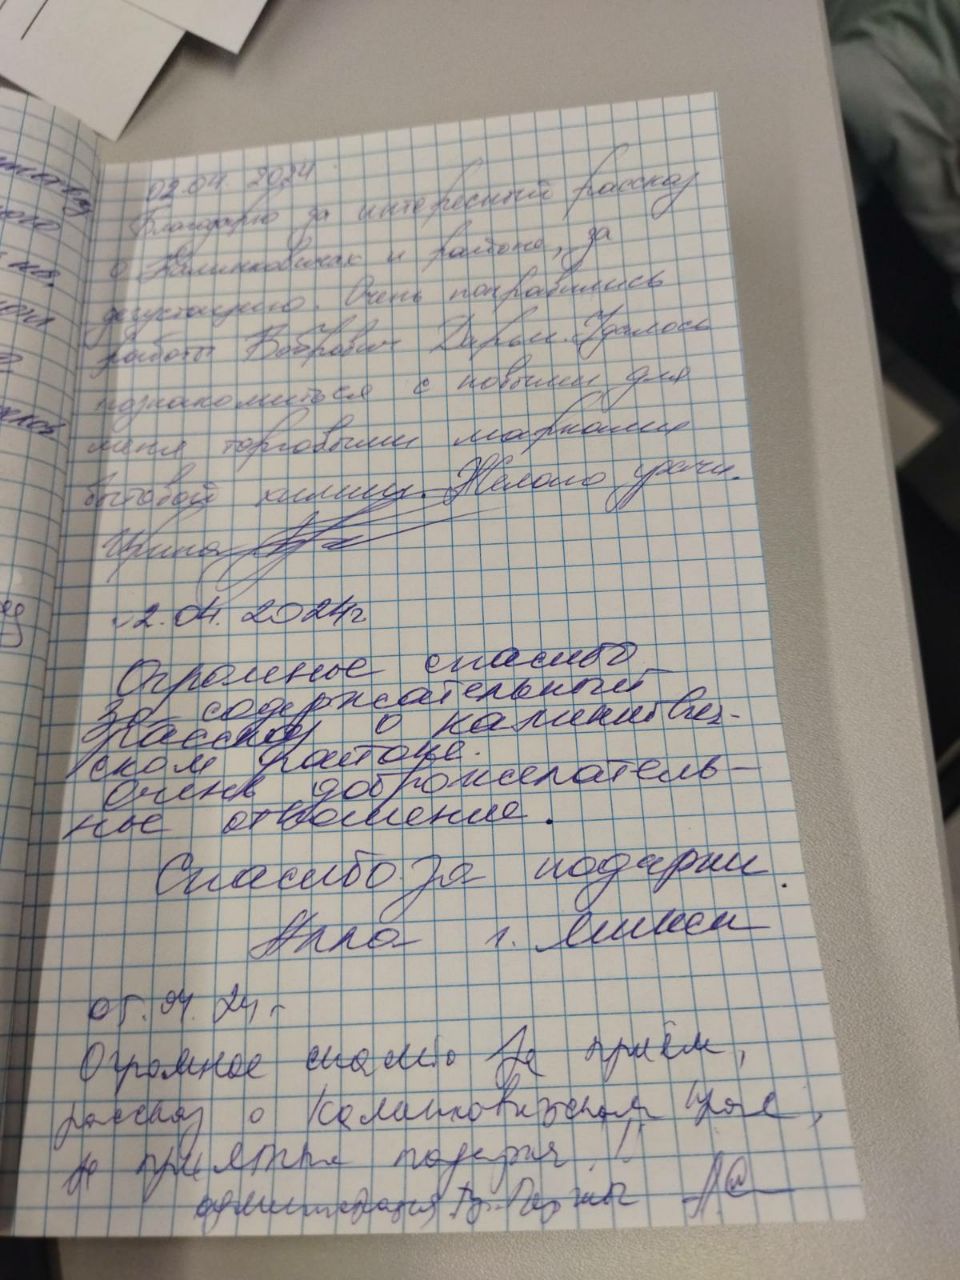 02.04.2024
Благодарю за интересный рассказ
о Калинковичах и районе, за
дегустацию. Очень понравились
работы Бобрович Дарьи. Удалось
познакомиться с новыми для
меня торговыми марками
бытовой химии. Желаю удачи.
Ирина
2.04.2024г
Огромные спасибо
за содержательный
рассказ о
ском районе.
Очень доброжелатель-
ные отношение.
Спасибо за подарки.
Анна г. Минск
05.04.24 г
Огромное спасибо за приём,
рассказ о Калинковичском крае,
за приятные подарки!!
администрация